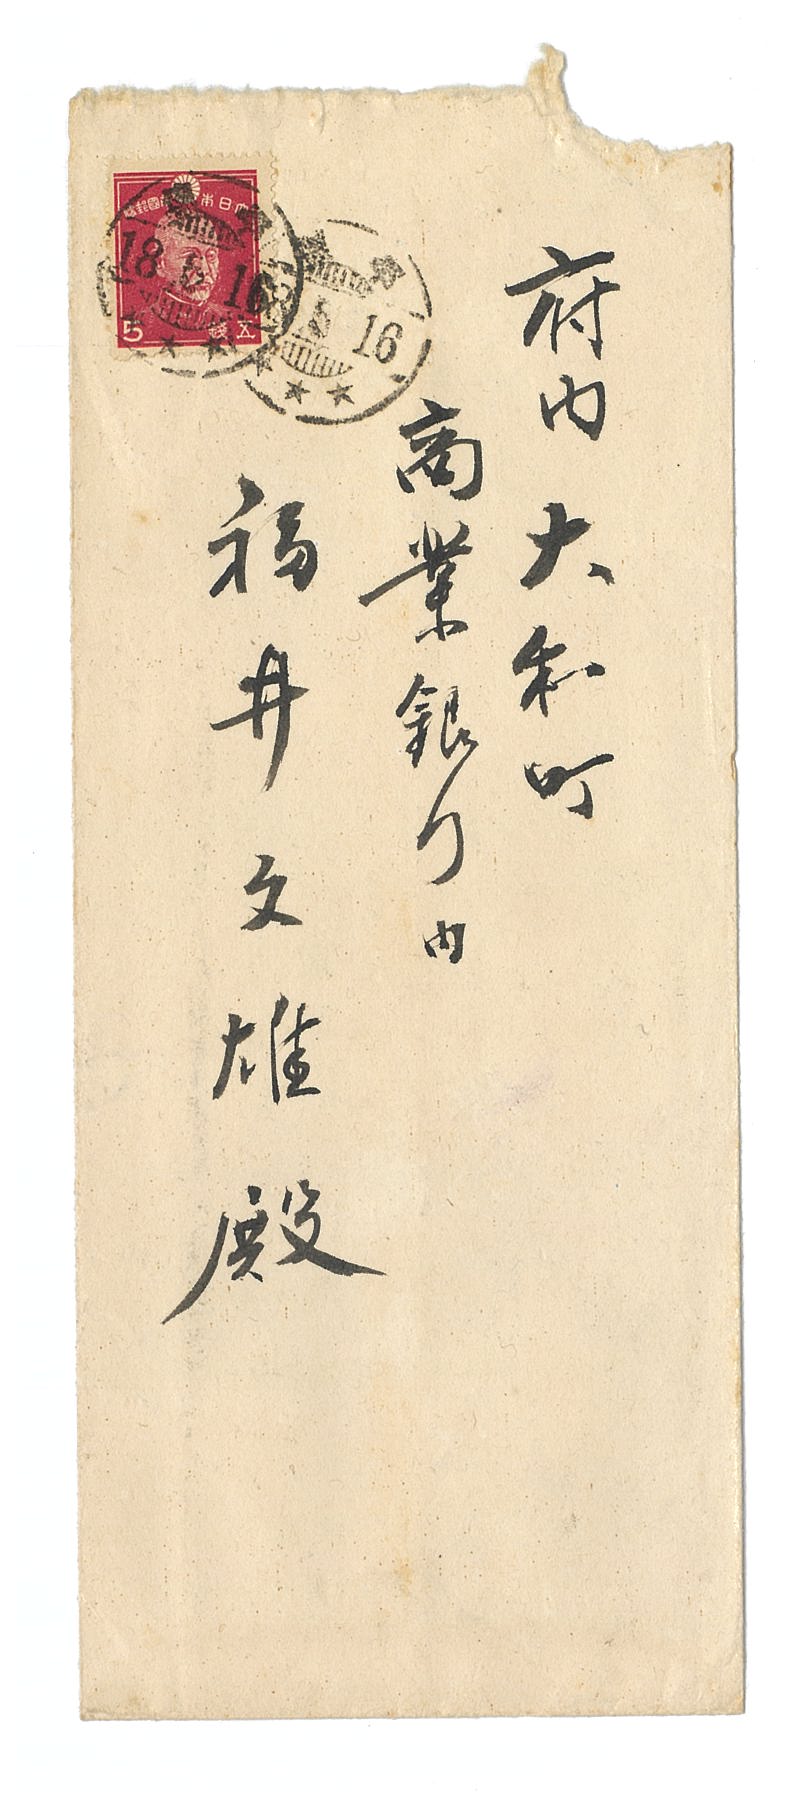 府内大和町
商業銀行内
福井文雄殿
大日本帝國郵便
5 五銭
18 16
16